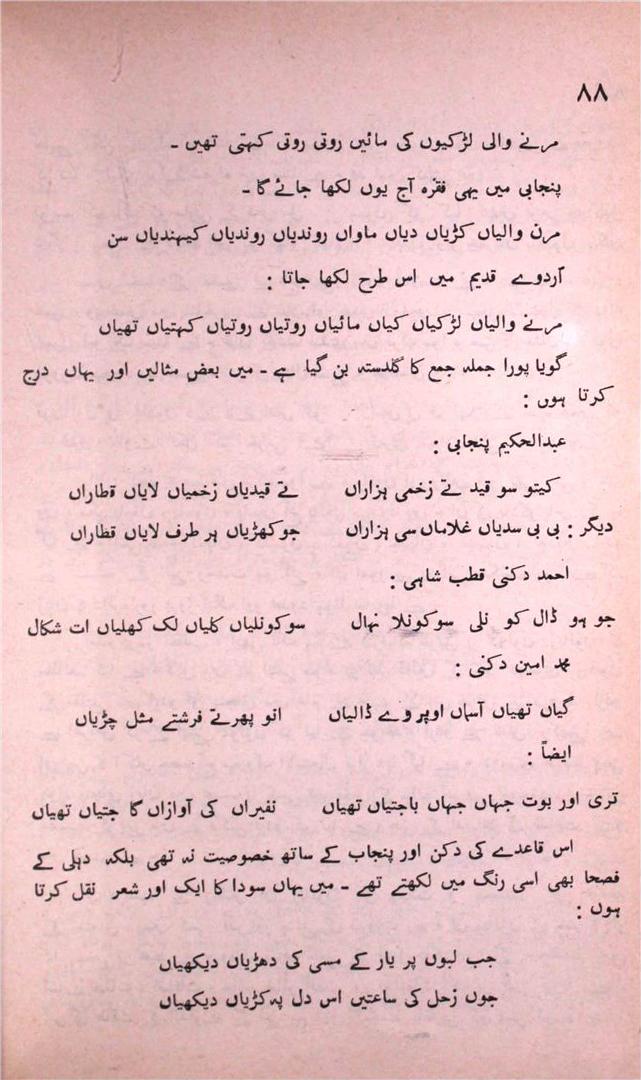 ۸۸
مرنے والی لڑکیوں کی مائیں روتی روتی کہتی تھیں ۔
پنجابی میں یہی فقرہ آج یوں لکھا جائے گا ۔
مرن والیاں کڑیاں دیاں ماواں روندیاں روندیاں کیہندیاں سن
اُردوے قدیم میں اس طرح لکھا جاتا :
مرنے والیاں لڑکیاں کیاں مائیاں روتیاں روتیاں کہتیاں تھیاں
گویا پورا جملہ جمع کا گلدستہ بن گیا ہے ۔ میں بعض مثالیں اور یہاں درج
کرتا ہوں :
عبدالحکیم پنجابی :
کیتو سو قید تے زخمی ہزاراں تے قیدیاں زخمیاں لایاں قطاراں
دیگر : بی بی سدیاں غلاماں سی ہزاراں جوکھڑیاں ہر طرف لایاں قطاراں
احمد دکنی قطب شاہی :
جو ہو ڈال کو نلی سوکونلا نہال سوکونلیاں کلیاں لک کھلیاں ات شکال
محمد امین دکنی :
گیاں تھیاں آسماں اوپر وے ڈالیاں انو پھرتے فرشتے مثل چڑیاں
ایضاً :
تری اور بوت جہاں جہاں باجتیاں تھیاں نفیراں کی آوازاں گا جتیاں تھیاں
اس قاعدے کی دکن اور پنجاب کے ساتھ خصوصیت نہ تھی بلکہ دہلی کے
فصحا بھی اسی رنگ میں لکھتے تھے ۔ میں یہاں سودا کا ایک اور شعر نقل کرتا
ہوں :
جب لبوں پر یار کے مسی کی دھڑیاں دیکھیاں
جوں زحل کی ساعتیں اس دل پہ کڑیاں دیکھیاں